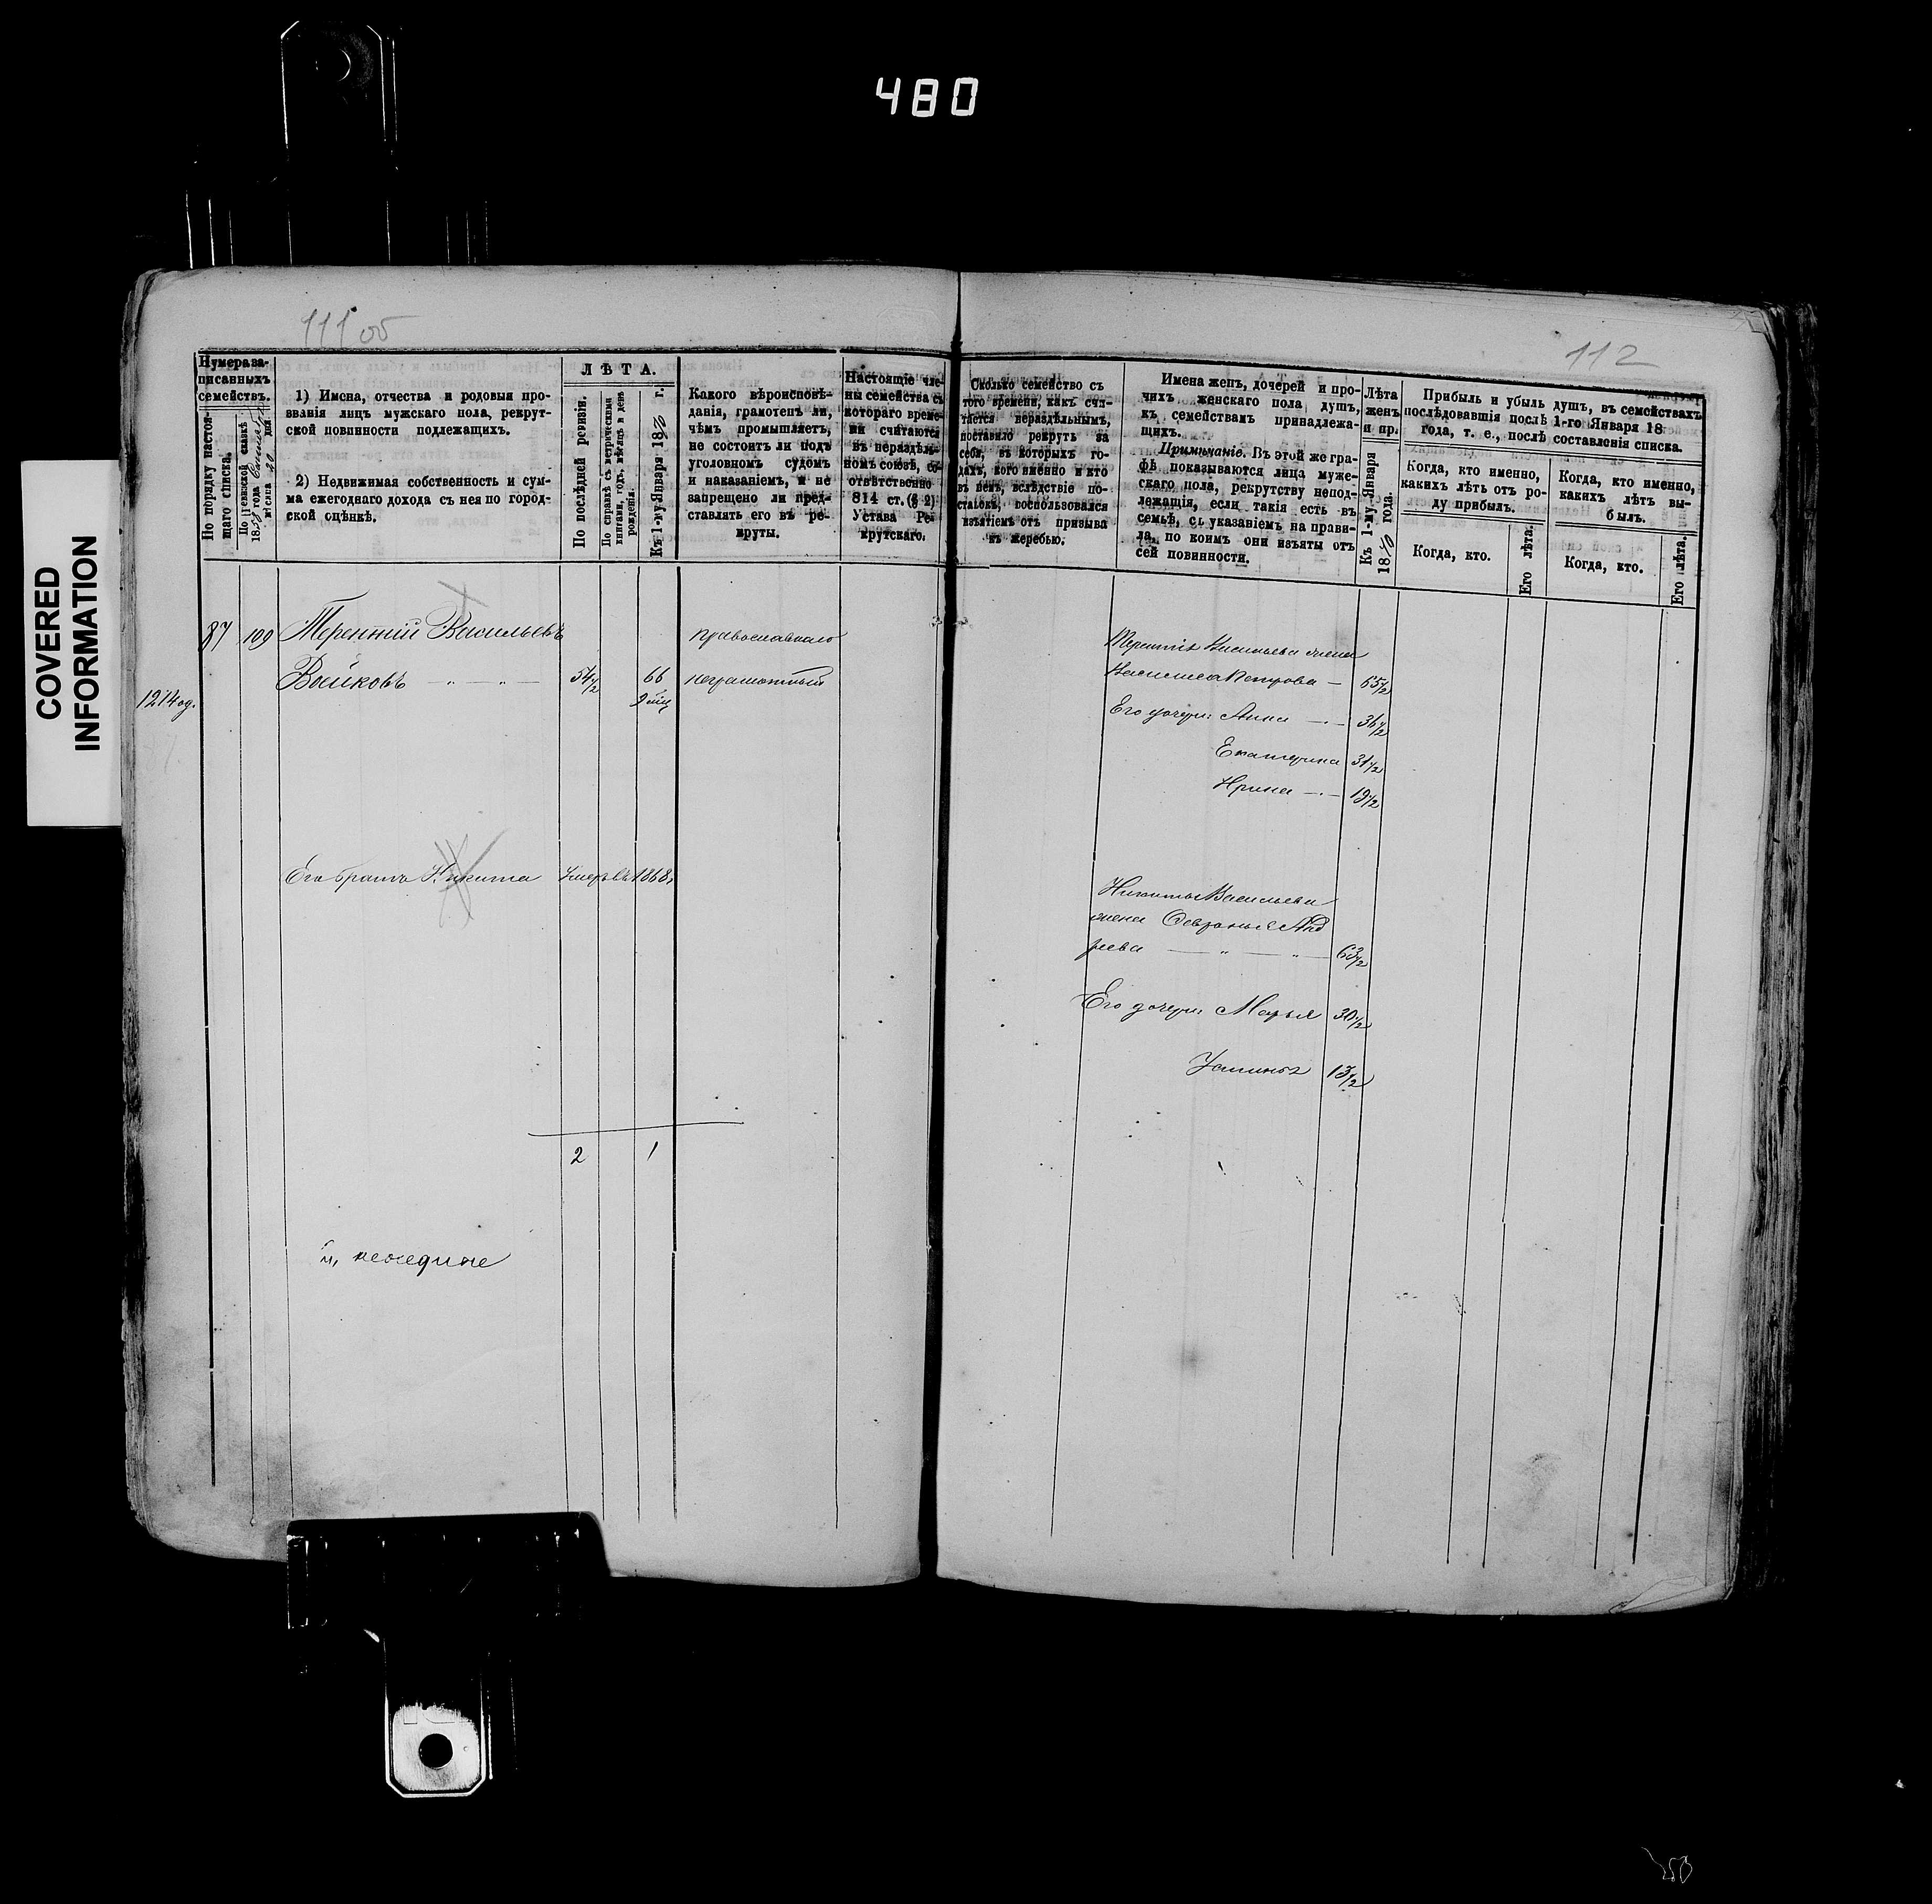 480
COVERED
INFORMATION
111 об
112
Нумера за-
писанныхъ
семействъ.
По порядку настоя-
щаго списка.
По ревизской сказкѣ
1858 года
мѣсяца 20 дня.
1) Имена, отчества и родовыя про-
званія лицъ мужскаго пола, рекрут-
ской повинности подлежащихъ.
2) Недвижимая собственность и сум-
ма ежегоднаго дохода съ нея по город-
ской оцѣнкѣ.
ЛѢТА.
По послѣдней ревизіи.
По справкѣ съ метрическими
книгами, годъ, мѣсяцъ и день
рожденія.
Къ 1-му Января 1870 г.
Какого вѣроисповѣ-
данія, грамотенъ ли,
чѣмъ промышляетъ,
не состоитъ ли подъ
уголовномъ судомъ
и наказаніемъ, и не
запрещено ли пред-
ставлять его въ ре-
круты.
Настоящіе чле-
ны семейства съ
котораго време-
ни считаются
въ нераздѣль-
номъ союзѣ, со-
отвѣтственно
814 ст. (§ 2)
Устава Ре-
крутскаго.
Сколько семейство съ
того времени, какъ счи-
тается нераздѣльнымъ,
поставило рекрутъ за
себя, въ которыхъ го-
дахъ, кого именно и кто
въ немъ, вслѣдствіе по-
ставки, воспользовался
изъятіемъ отъ призыва
къ жеребью.
Имена женъ, дочерей и про-
чихъ женскаго пола душъ,
къ семействамъ принадлежа-
щихъ.
Примѣчаніе. Въ этой же гра-
фѣ показываются лица муже-
скаго пола, рекрутству непод-
лежащія, если такія есть въ
семьѣ, съ указаніемъ на прави-
ла, по коимъ они изъяты отъ
сей повинности.
Лѣта
женъ
и пр.
Къ 1-му Января
1870 года.
Прибыль и убыль душъ, въ семействахъ
послѣдовавшія послѣ 1-го Января 18
года, т. е., послѣ составленія списка.
Когда, кто именно,
какихъ лѣтъ отъ ро-
ду прибылъ.
Когда, кто.
Его лѣта.
Когда, кто именно,
какихъ лѣтъ вы-
былъ.
Когда, кто.
Его лѣта.
87 109 Терентій Васильевъ православнаго
Войковъ — " — " — 54 1/2 66 неграмотный
9 мѣс
Терентія Васильева жена
Василиса Петрова — 65 1/2
Его дочери: Анна — . — 36 1/2
Екатерина 31 1/2
Ирина — . — 19 1/2
Его братъ Никита Умеръ въ 1868
Никиты Васильева
жена Февронья Анд
реева — " — " — 63 1/2
Его дочери: Марья 30 1/2
Устинья 13 1/2
2 1